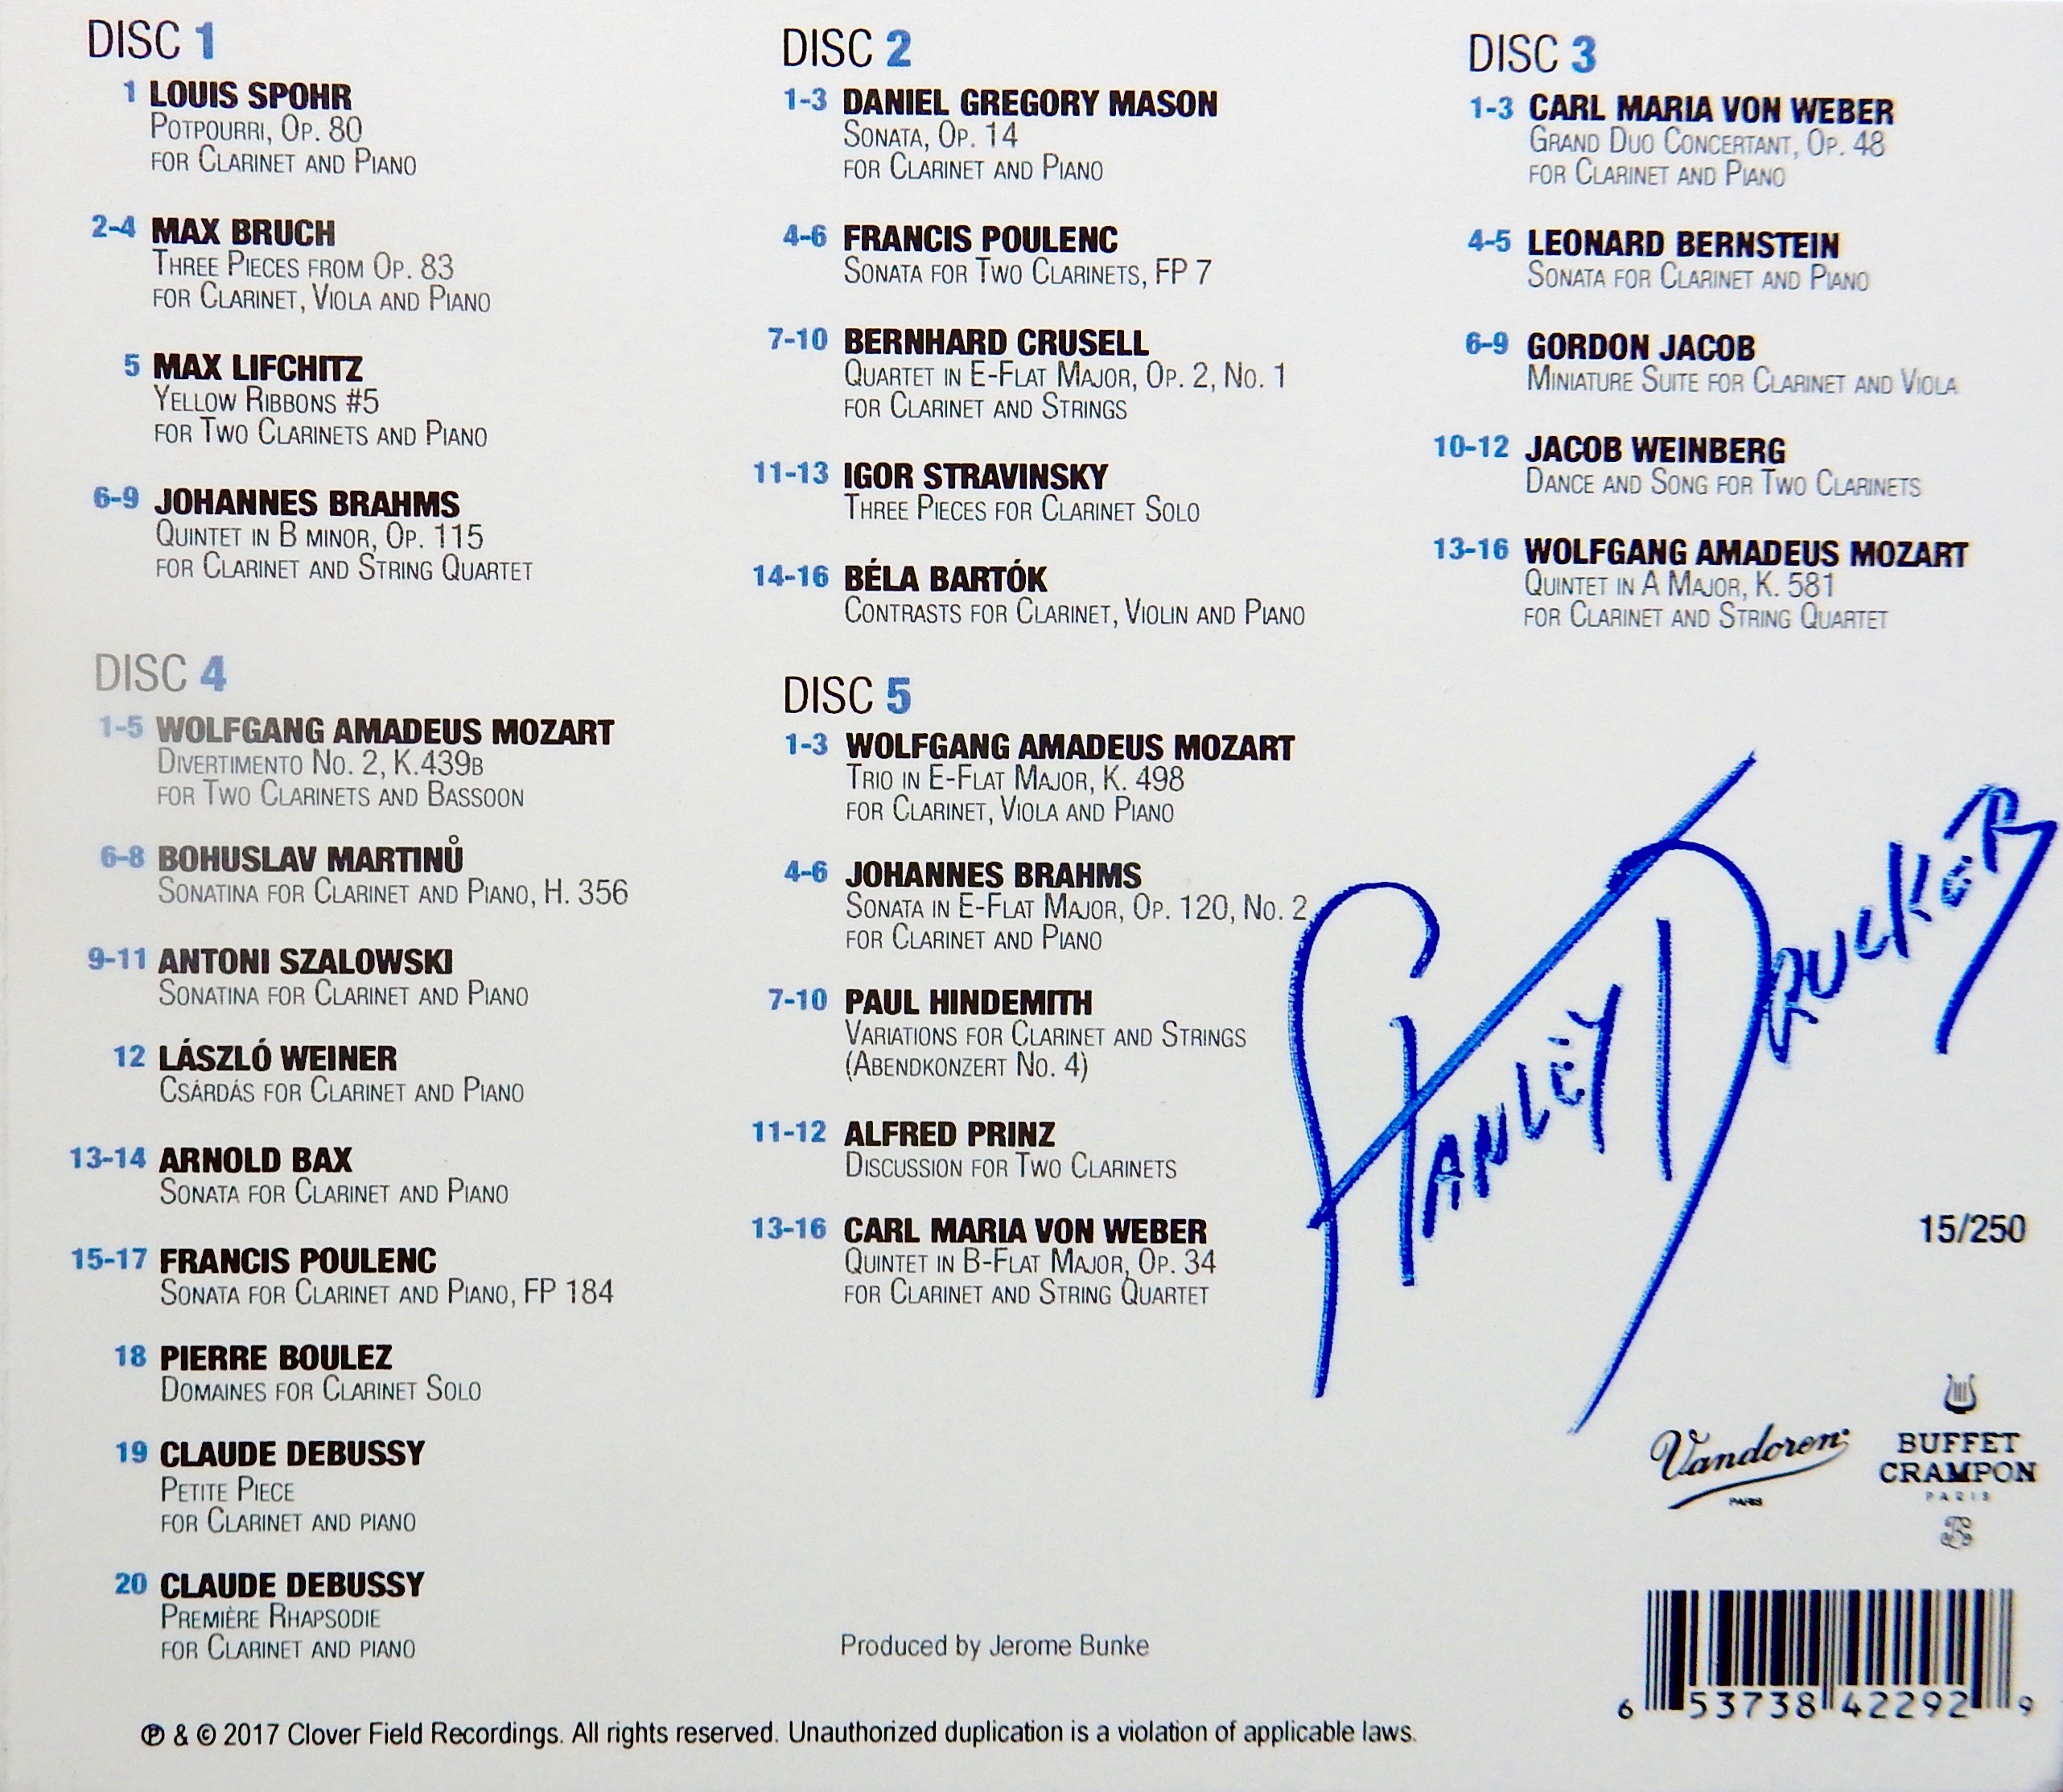 DISC 1
1 LOUIS SPOHR
POTPOURRI, OP. 80
FOR CLARINET AND PIANO
2-4 MAX BRUCH
THREE PIECES FROM OP. 83
FOR CLARINET, VIOLA AND PIANO
5 MAX LIFCHITZ
YELLOW RIBBONS #5
FOR TWO CLARINETS AND PIANO
6-9 JOHANNES BRAHMS
QUINTET IN B MINOR, OP. 115
FOR CLARINET AND STRING QUARTET
DISC 2
1-3 DANIEL GREGORY MASON
SONATA, OP. 14
FOR CLARINET AND PIANO
4-6 FRANCIS POULENC
SONATA FOR TWO CLARINETS, FP 7
7-10 BERNHARD CRUSELL
QUARTET IN E-FLAT MAJOR, OP. 2, NO. 1
FOR CLARINET AND STRINGS
11-13 IGOR STRAVINSKY
THREE PIECES FOR CLARINET SOLO
14-16 BÉLA BARTÓK
CONTRASTS FOR CLARINET, VIOLIN AND PIANO
DISC 3
1-3 CARL MARIA VON WEBER
GRAND DUO CONCERTANT, OP. 48
FOR CLARINET AND PIANO
4-5 LEONARD BERNSTEIN
SONATA FOR CLARINET AND PIANO
6-9 GORDON JACOB
MINIATURE SUITE FOR CLARINET AND VIOLA
10-12 JACOB WEINBERG
DANCE AND SONG FOR TWO CLARINETS
13-16 WOLFGANG AMADEUS MOZART
QUINTET IN A MAJOR, K. 581
FOR CLARINET AND STRING QUARTET
DISC 4
1-5 WOLFGANG AMADEUS MOZART
DIVERTIMENTO NO. 2, K.439B
FOR TWO CLARINETS AND BASSOON
6-8 BOHUSLAV MARTINŮ
SONATINA FOR CLARINET AND PIANO, H. 356
9-11 ANTONI SZALOWSKI
SONATINA FOR CLARINET AND PIANO
12 LÁSZLÓ WEINER
CSÁRDÁS FOR CLARINET AND PIANO
13-14 ARNOLD BAX
SONATA FOR CLARINET AND PIANO
15-17 FRANCIS POULENC
SONATA FOR CLARINET AND PIANO, FP 184
18 PIERRE BOULEZ
DOMAINES FOR CLARINET SOLO
19 CLAUDE DEBUSSY
PETITE PIECE
FOR CLARINET AND PIANO
20 CLAUDE DEBUSSY
PREMIÈRE RHAPSODIE
FOR CLARINET AND PIANO
DISC 5
1-3 WOLFGANG AMADEUS MOZART
TRIO IN E-FLAT MAJOR, K. 498
FOR CLARINET, VIOLA AND PIANO
4-6 JOHANNES BRAHMS
SONATA IN E-FLAT MAJOR, OP. 120, NO. 2
FOR CLARINET AND PIANO
7-10 PAUL HINDEMITH
VARIATIONS FOR CLARINET AND STRINGS
(ABENDKONZERT NO. 4)
11-12 ALFRED PRINZ
DISCUSSION FOR TWO CLARINETS
13-16 CARL MARIA VON WEBER
QUINTET IN B-FLAT MAJOR, OP. 34
FOR CLARINET AND STRING QUARTET
STANLEY DRUCKER
15/250
Vandoren
PARIS
BUFFET
CRAMPON
PARIS
Produced by Jerome Bunke
6 53738 42292 9
℗ & © 2017 Clover Field Recordings. All rights reserved. Unauthorized duplication is a violation of applicable laws.